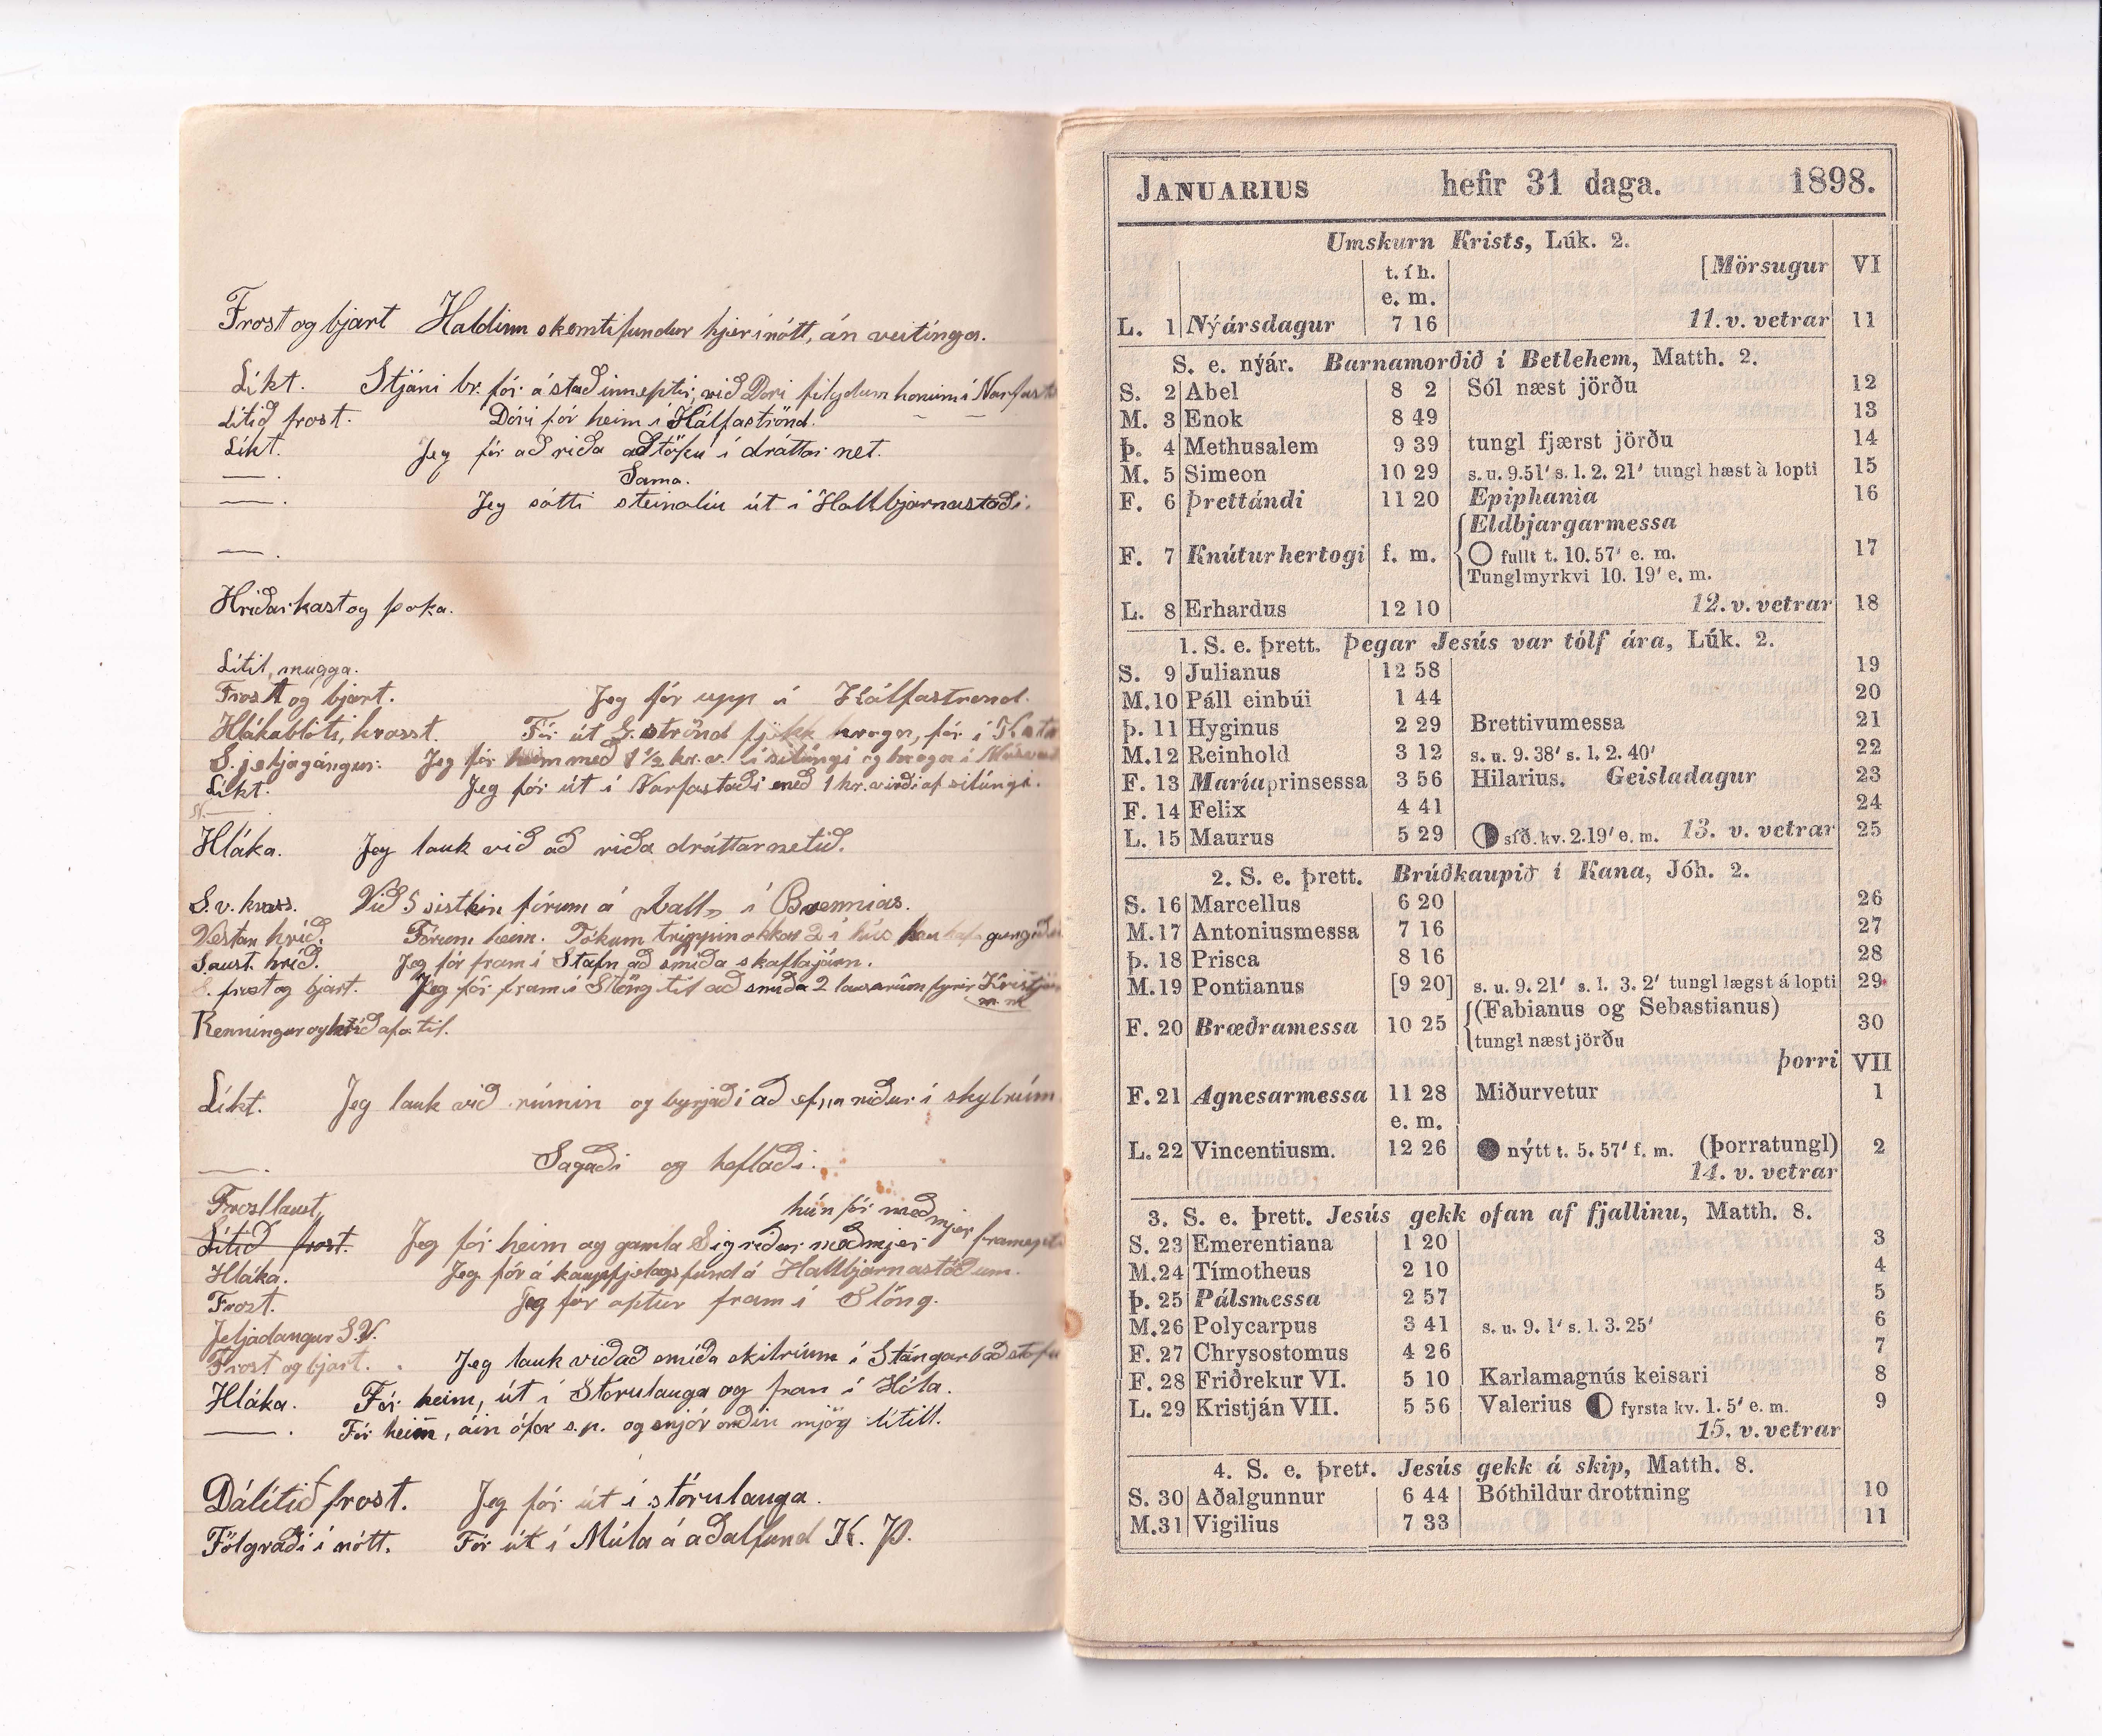 Frost og bjart Haldinn skemtifundur hjer í nótt, án veitínga.
Líkt. Stjáni br. fór á stað inneptir, við Dóri filgdum honum í Narfast
Litið frost. Dóri fór heim í Kálfaströnd.
Líkt. Jeg fór að riða aðtöku í dráttar net.
— . Sama.
— . Jeg sótti steinolíu út í Hallbjarnastaði.
— .
Hríðarkast og þoka.
Lítil, mugga.
Frost og bjart. Jeg fór upp í Kálfastrond.
Hlákublóti, hvasst. Fór út strönd fjekk hrogn, fór í
S. jeljagángur. Jeg fór heim með 1 1/2 kr. v. í silúngi og hrogn í
Líkt. Jeg fór út í Narfastaði með 1 kr. virði af silúngi.
N. — .
Hláka. Jeg lauk við að riða dráttarnetið.
S.v. hvass. Við 5 sistkin fórum á „ball„ í Brenniás.
Vestan hríð. Fórum heim. Tókum trippin okkar 2 í hús
S.aust. hríð. Jeg fór fram í Stafn að smíða skaflajárn.
S. frost og bjart. Jeg fór fram í Stöng til að smíða 2 lausarúm fyrir Kristján
m. m.
Renníngur og hríð af o. til.
Líkt. Jeg lauk við rúmin og byrjaði að efna niður í skybrúm
— . Sagaði og heflaði.
Frostlaust, hún fór með mjer framept
Lítið frost. Jeg fór heim og gamla Sigríður með mjer
Hláka. Jeg fór á kaupfjelagsfund á Hallbjarnastöðum.
Frost. Jeg fór aptur fram í Stöng.
Jeljadangur S.V.
Frost og bjart. Jeg lauk við að smíða skilrúm í Stángarbaðstofu
Hláka. Fór heim, út í Storulauga og fram í Hóla.
— . Fór heim, áin ófær s.p. og snjór orðin mjög lítill.
Dálítið frost. Jeg fór út í stórulauga.
Fölgráði í nótt. Fór út í Múla á aðalfund K. Þ.
JANUARIUS hefir 31 daga. 1898.
Umskurn Krists, Lúk. 2.
t. í h. [Mörsugur VI
e. m.
L. 1 Nýársdagur 7 16 11. v. vetrar 11
S. e. nýár. Barnamorðið í Betlehem, Matth. 2.
S. 2 Abel 8 2 Sól næst jörðu 12
M. 3 Enok 8 49 13
Þ. 4 Methusalem 9 39 tungl fjærst jörðu 14
M. 5 Simeon 10 29 s. u. 9.51′ s. l. 2. 21′ tungl hæst à lopti 15
F. 6 Þrettándi 11 20 Epiphania 16
Eldbjargarmessa
F. 7 Knútur hertogi f. m. ◯ fullt t. 10. 57′ e. m. 17
Tunglmyrkvi 10. 19′ e. m.
L. 8 Erhardus 12 10 12. v. vetrar 18
1. S. e. þrett. Þegar Jesús var tólf ára, Lúk. 2.
S. 9 Julianus 12 58 19
M. 10 Páll einbúi 1 44 20
Þ. 11 Hyginus 2 29 Brettivumessa 21
M. 12 Reinhold 3 12 s. u. 9. 38′ s. l. 2. 40′ 22
F. 13 Maríaprinsessa 3 56 Hilarius. Geisladagur 23
F. 14 Felix 4 41 24
L. 15 Maurus 5 29 síð. kv. 2.19′ e. m. 13. v. vetrar 25
2. S. e. þrett. Brúðkaupið í Kana, Jóh. 2.
S. 16 Marcellus 6 20 26
M. 17 Antoniusmessa 7 16 27
Þ. 18 Prisca 8 16 28
M. 19 Pontianus [9 20] s. u. 9. 21′ s. l. 3. 2′ tungl lægst á lopti 29
(Fabianus og Sebastianus)
F. 20 Bræðramessa 10 25 30
tungl næst jörðu
Þorri VII
F. 21 Agnesarmessa 11 28 Miðurvetur 1
e. m.
L. 22 Vincentiusm. 12 26 nýtt t. 5. 57′ f. m. (Þorratungl) 2
14. v. vetrar
3. S. e. þrett. Jesús gekk ofan af fjallinu, Matth. 8.
S. 23 Emerentiana 1 20 3
M. 24 Tímotheus 2 10 4
Þ. 25 Pálsmessa 2 57 5
M. 26 Polycarpus 3 41 s. u. 9. 1′ s. l. 3. 25′ 6
F. 27 Chrysostomus 4 26 7
F. 28 Friðrekur VI. 5 10 Karlamagnús keisari 8
L. 29 Kristján VII. 5 56 Valerius fyrsta kv. 1. 5′ e. m. 9
15. v. vetrar
4. S. e. þrett. Jesús gekk á skip, Matth. 8.
S. 30 Aðalgunnur 6 44 Bóthildur drottning 10
M. 31 Vigilius 7 33 11